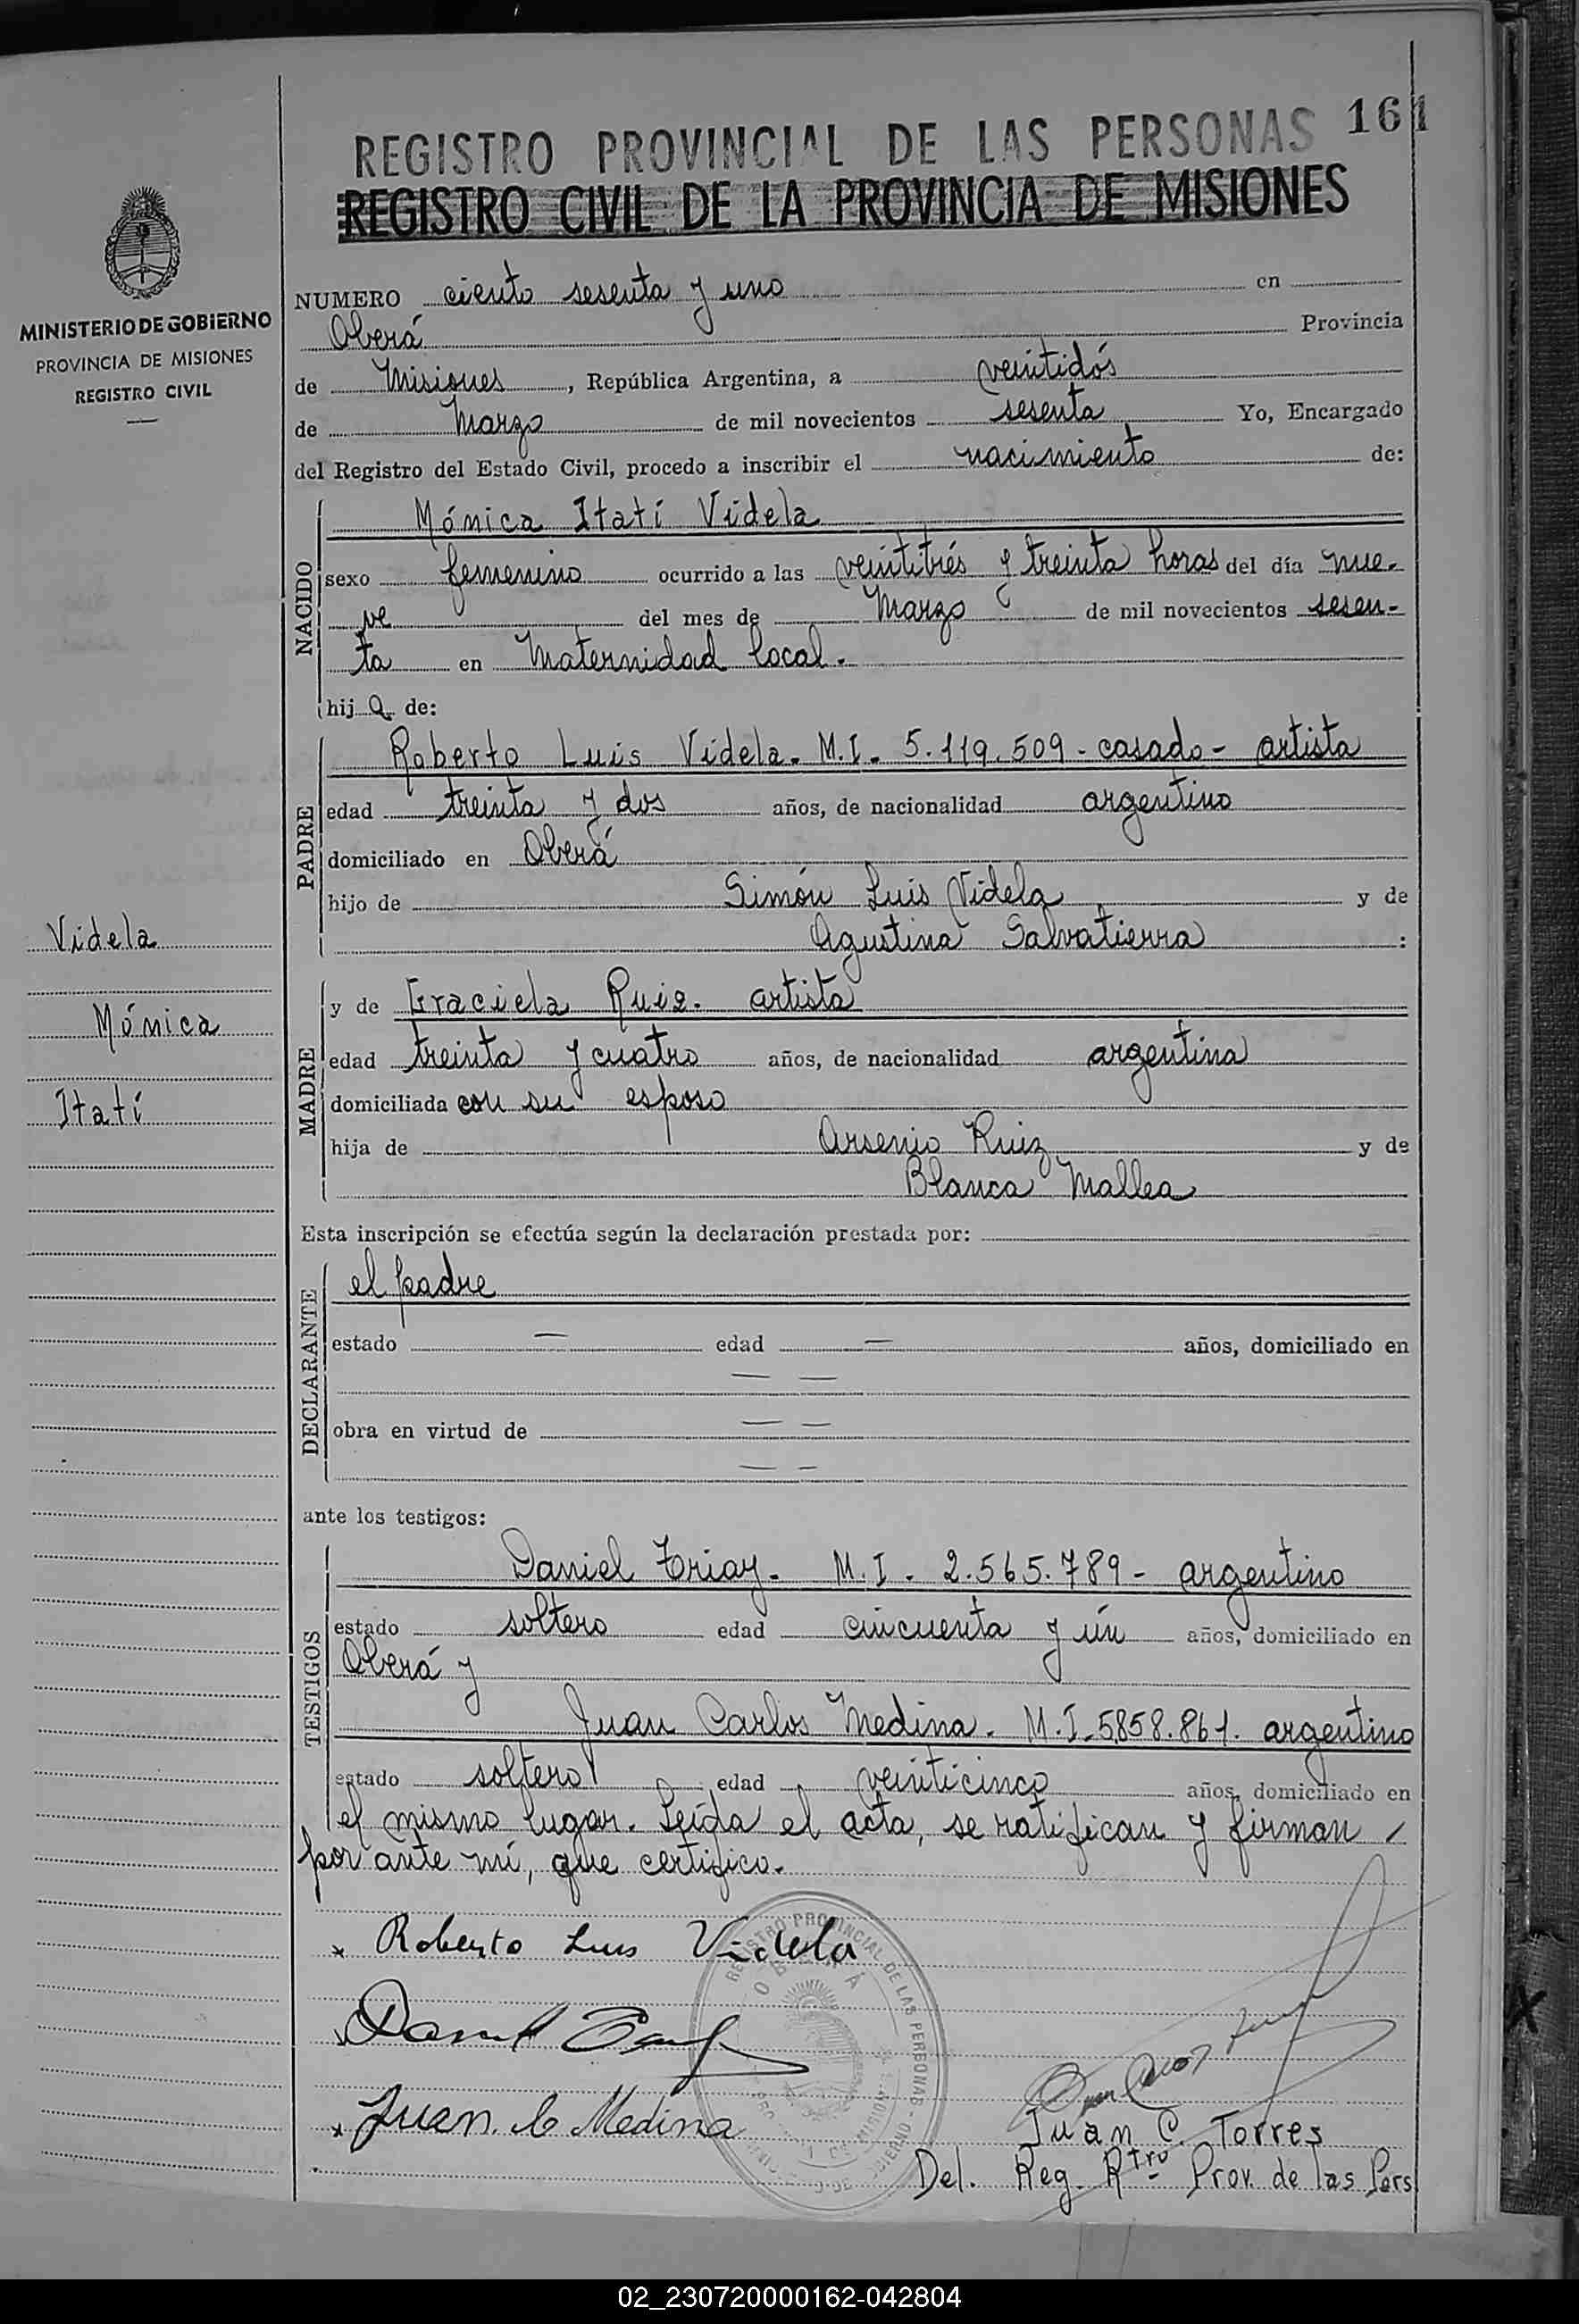 161
REGISTRO PROVINCIAL DE LAS PERSONAS
REGISTRO CIVIL DE LA PROVINCIA DE MISIONES
MINISTERIO DE GOBIERNO
PROVINCIA DE MISIONES
REGISTRO CIVIL
Videla
Mónica
Itatí
NUMERO ciento sesenta y uno en
Oberá Provincia
de Misiones, República Argentina, a veintidós
de Marzo de mil novecientos sesenta Yo, Encargado
del Registro del Estado Civil, procedo a inscribir el nacimiento de:
NACIDO
Mónica Itatí Videla
sexo femenino ocurrido a las veintitrés y treinta horas del día nue-
ve del mes de Marzo de mil novecientos sesen-
ta en Maternidad local.
hij a de:
PADRE
Roberto Luis Videla. M.I. 5.119.509 - casado - artista
edad treinta y dos años, de nacionalidad argentino
domiciliado en Oberá
hijo de Simón Luis Videla y de
Agustina Salvatierra :
MADRE
y de Graciela Ruiz. artista
edad treinta y cuatro años, de nacionalidad argentina
domiciliada con su esposo
hija de Arsenio Ruiz y de
Blanca Mallea
Esta inscripción se efectúa según la declaración prestada por:
DECLARANTE
el padre
estado — edad — años, domiciliado en
— —
obra en virtud de — —
— —
ante los testigos:
TESTIGOS
Daniel Triay. M.I. 2.565.789 - argentino
estado soltero edad cincuenta y ún años, domiciliado en
Oberá y
Juan Carlos Medina. M.I. 5858.861. argentino
estado soltero edad veinticinco años, domiciliado en
el mismo lugar. Leída el acta, se ratifican y firman
por ante mí, que certifico.
Roberto Luis Videla
REGISTRO PROVINCIAL DE LAS PERSONAS
OBERÁ
Juan. C Medina
Juan C. Torres
Del. Reg. Rtro Prov. de las Pers
02_230720000162-042804